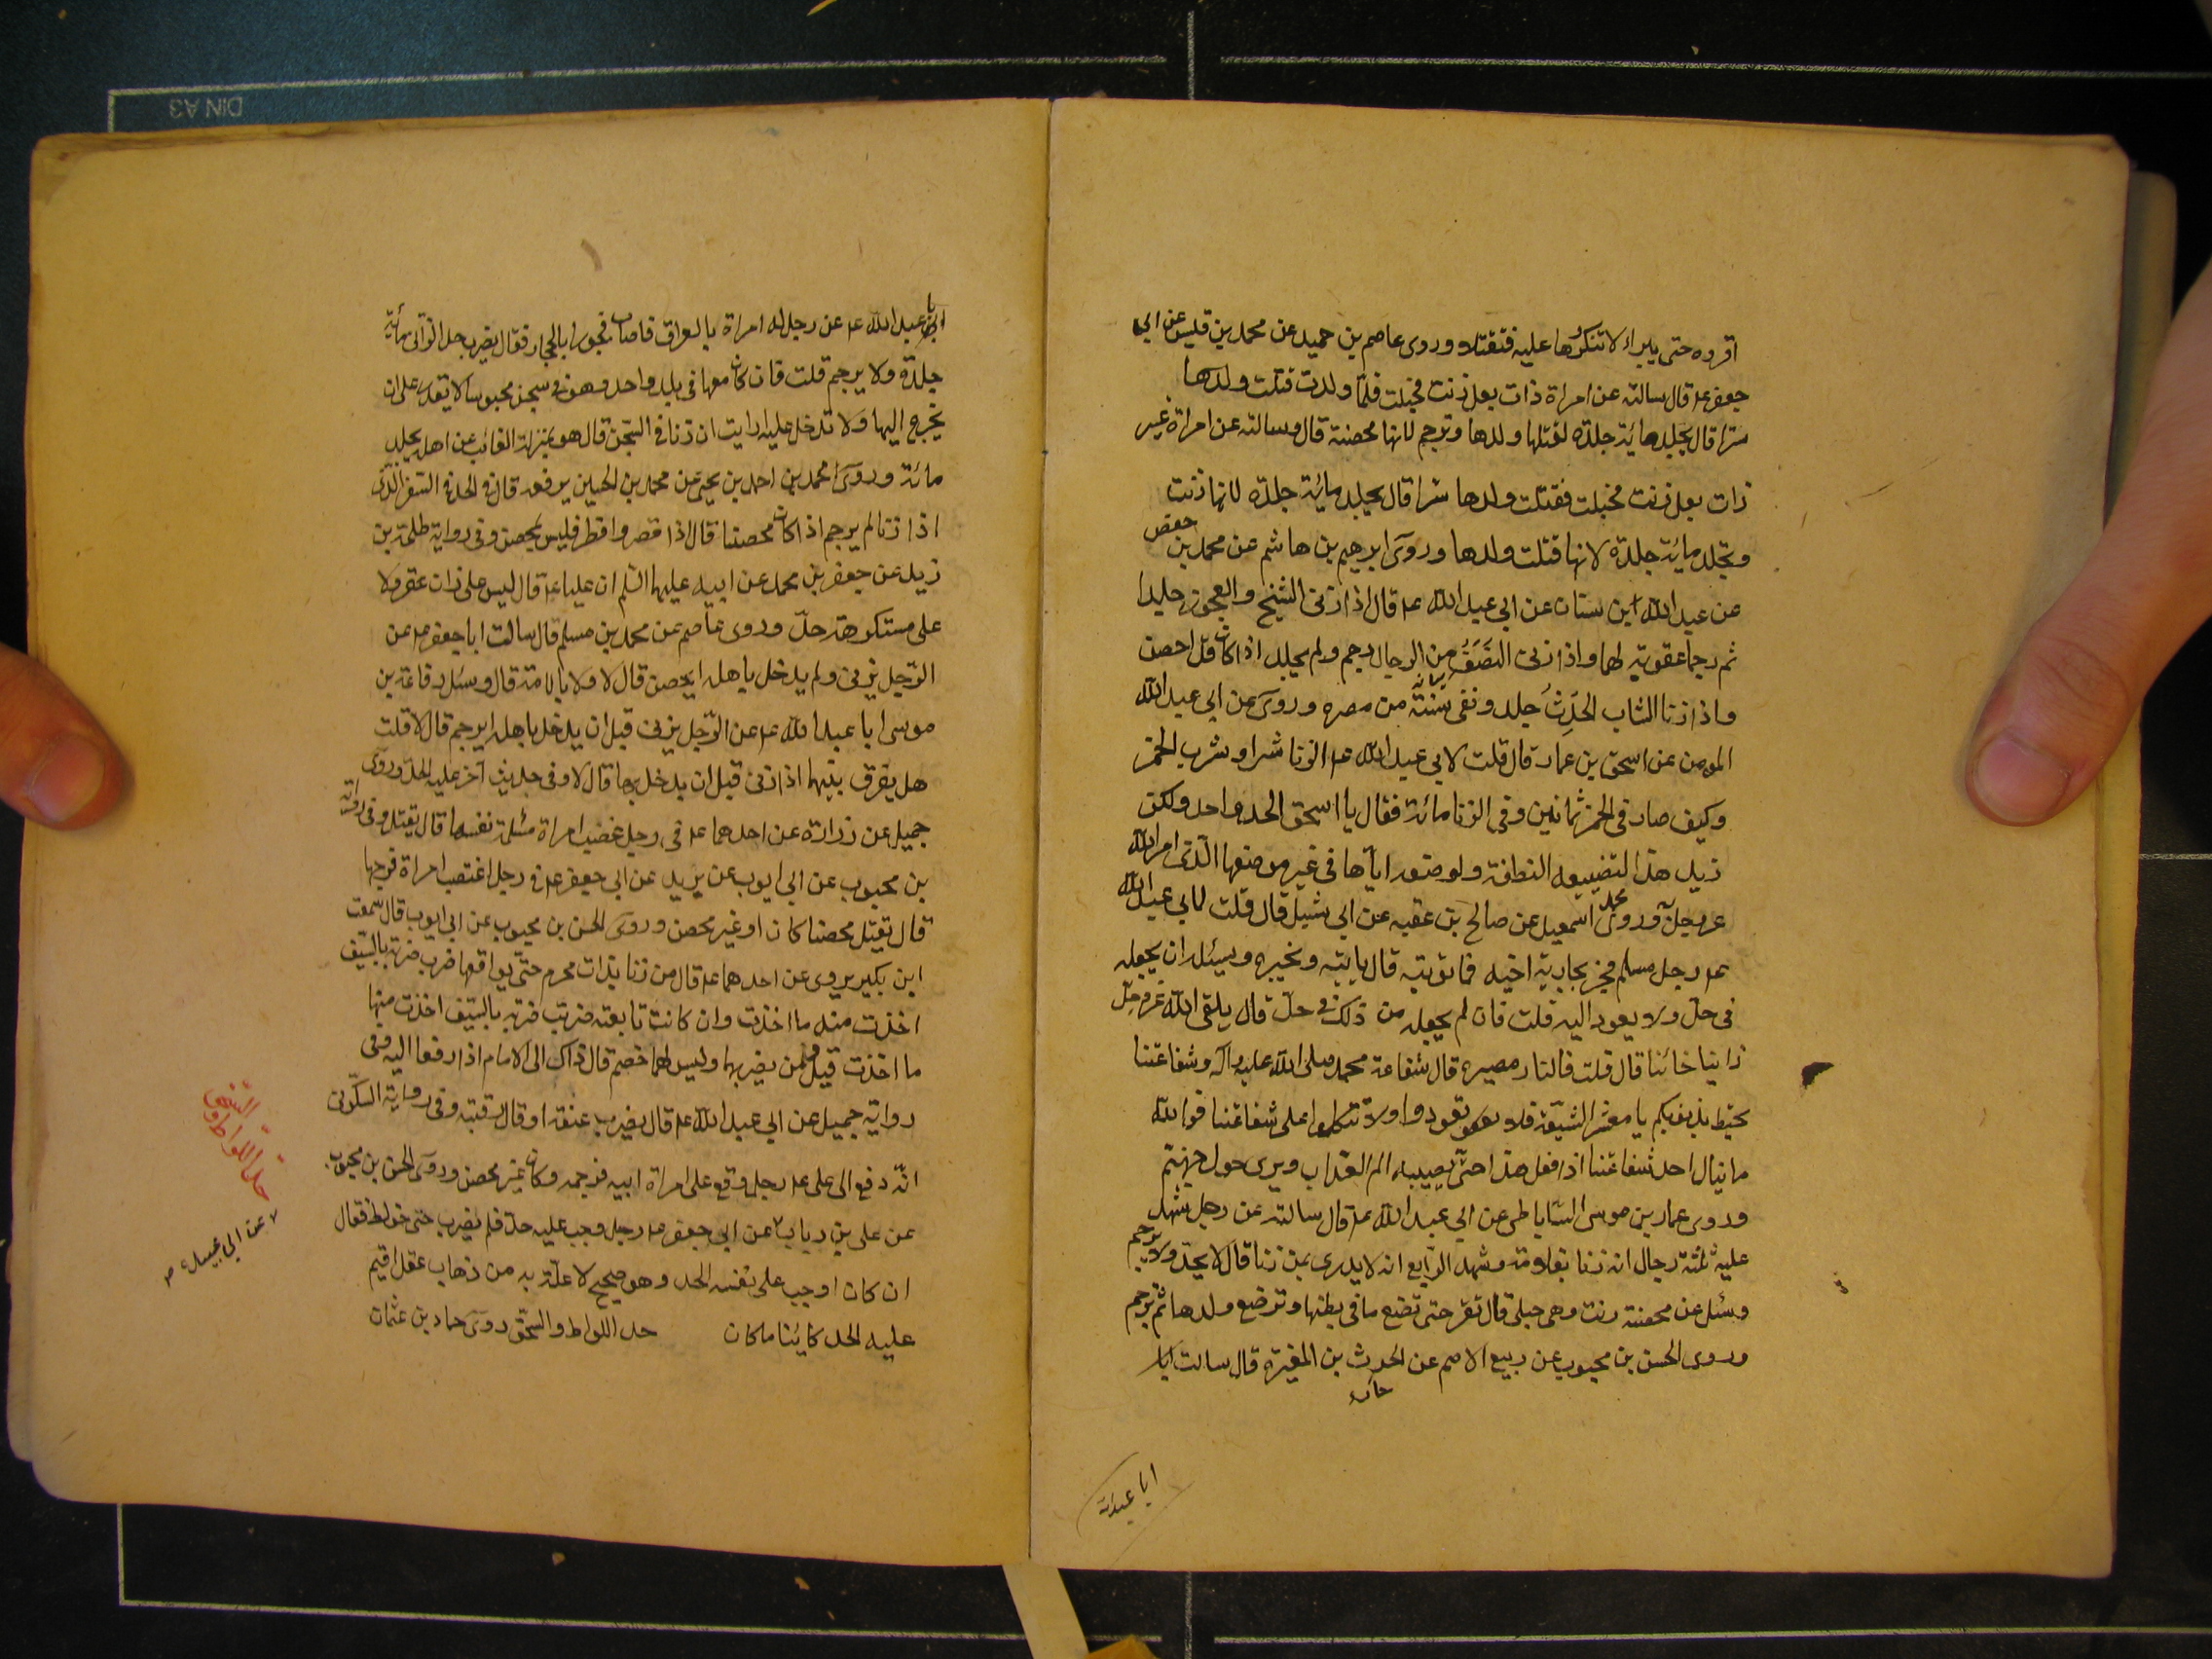 اقروه حتى يبراء لا تنكؤها عليه فتقتلاه وروى عاصم بن حميد عن محمد بن قليس عن ابي
جعفر ع قال سالته عن امراة ذات بعل زنت فحبلت فلما ولدت قتلت ولدها
سرا قال يجلد مائة جلدة لقتلها ولدها وترجم لانها محصنة قال وسالته عن امراة غير
ذات بعل زنت فحبلت فقتلت ولدها سرا قال يجلد مائة جلدة لانها زنت
وتجلد مائة جلدة لانها قتلت ولدها وروى ابرهيم بن هاشم عن محمد بن حفص
عن عبد الله ابن سنان عن ابي عبد الله ع قال اذا زنى الشيخ والعجوز جلدا
ثم رجما عقوبة لهما واذا زنى النصف من الرجال رجم ولم يجلد اذا كان قد احصن
واذا زنا الشاب الحدث جلد ونفى سنة من مصره وروى عن ابي عبد الله
المومن عن اسحق بن عمار قال قلت لابي عبد الله ع الزنا شر او شرب الخمر
وكيف صار في الخمر ثمانين وفي الزنا مائة فقال يا اسحق الحد واحد ولكن
زيد هذا لتضييعه النطفة ولوضعه اياها في غير موضعها الذى امر الله
عز وجل وروى محمد اسمعيل عن صالح بن عقبه عن ابي شبل قال قلت لابي عبد الله
ع رجل مسلم فجر بجارية اخيه فما توبته قال ياتيه ويخبره ويسئله ان يجعله
في حل ولا يعود اليه قلت فان لم يجعله من ذلك في حل قال يلقى الله عز وجل
زانيا خائنا قال قلت فالنار مصيره قال شفاعة محمد صلى الله عليه وآله وشفاعتنا
تحيط بذنوبكم يا معشر الشيعة فلا تعودوا ولا تتكلوا على شفاعتنا فوالله
ما ينال احد شفاعتنا اذا فعل هذا حتى يصيبه الم العذاب ويرى هول جهنم
وروى عمار بن موسى الساباطى عن ابي عبد الله ع قال سالته عن رجل شهد
عليه ثلثة رجال انه زنا بفلانة وشهد الرابع انه لا يدرى بمن زنا قال لا يحد ولا يرجم
وسئل عن محصنة زنت وهى حبلى قال تقر حتى تضع ما في بطنها وترضع ولدها ثم ترجم
وروى الحسن بن محبوب عن ربيع الاصم عن الحرث بن المغيرة قال سالت ابا
ابا عبد الله
ابا عبد الله ع عن رجل له امراة بالعراق فاصاب فجورا بالحجاز فقال يضرب حد الزانى مائة
جلدة ولا يرجم قلت فان كان معها في بلد واحد وهو في سجن محبوسا لا يقدر على ان
يخرج اليها ولا تدخل عليه ارايت ان زنا في السجن قال هو بمنزلة الغائب عن اهله يجلد
مائة وروى محمد بن احمد بن يحيى عن محمد بن الحسين يرفعه قال في الحد في السفر الذى
اذا زنا لم يرجم اذا كان محصنا قال اذا قصر وافطر فليس بمحصن وفى رواية طلحة بن
زيد عن جعفر بن محمد عن ابيه عليهما السلم ان عليا ع قال ليس على زان عقر ولا
على مستكرهة حد وروى عاصم عن محمد بن مسلم قال سالت ابا جعفر ع عن
الرجل يزنى ولم يدخل باهله ايحصن قال لا ولا بالامة قال وسئل رفاعة بن
موسى ابا عبد الله ع عن الرجل يزنى قبل ان يدخل باهله ايرجم قال لا قلت
هل يفرق بينهما اذا زنى قبل ان يدخل بها قال لا وفى حديث آخر عليه الحد وروى
جميل عن زرارة عن احدهما ع في رجل غصب امراة مسلمة نفسها قال يقتل وفى رواية
بن محبوب عن ابي ايوب عن يزيد عن ابي جعفر ع في رجل اغتصب امراة فرجها
قال يقتل محصنا كان او غير محصن وروى الحسن بن محبوب عن ابي ايوب قال سمعت
ابن بكير يروى عن احدهما ع قال من زنا بذات محرم حتى يواقعها ضرب ضربة بالسيف
اخذت منه ما اخذت وان كانت تابعته ضربت ضربة بالسيف اخذت منها
ما اخذت قيل فمن يضربهما وليس لهما خصم قال ذاك الى الامام اذا رفعا اليه وفى
رواية جميل عن ابي عبد الله ع قال يضرب عنقه او قال رقبته وفى رواية السكونى
انه دفع الى على ع رجل وقع على امراة ابيه فرجمه وكان غير محصن وروى الحسن بن محبوب
عن على بن رباب عن ابي جعفر ع رجل وجب عليه حد فلم يضرب حتى خولط فقال
ان كان اوجب على نفسه الحد وهو صحيح لا علة به من ذهاب عقل اقيم
عليه الحد كائنا ما كان حد اللواط والسحق روى حماد بن عثمان
حد اللواط و
السحق
عن ابي عبيده